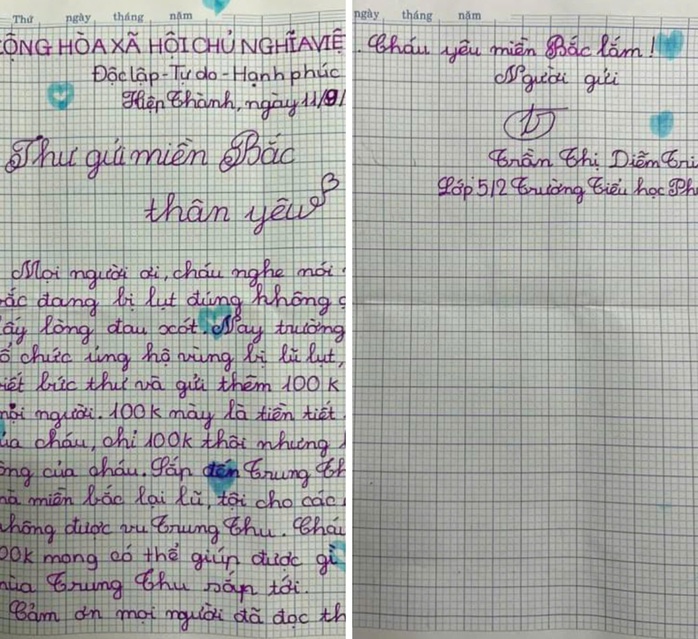 Thứ ngày tháng năm
CỘNG HÒA XÃ HỘI CHỦ NGHĨA VIỆ
Độc lập - Tự do - Hạnh phúc
Hiệp Thành, ngày 11/9/
Thư gửi miền Bắc
thân yêu
Mọi người ơi, cháu nghe nói
bắc đang bị lụt đúng không
lòng đau xót. Nay trường
tổ chức ủng hộ vùng bị lũ lụt,
viết bức thư và gửi thêm 100k
mọi người. 100k này là tiền tiết
của cháu, chỉ 100k thôi nhưng
của cháu. Sắp đến Trung Th
mà miền bắc lại lũ, tội cho các
không được vu Trung Thu. Cháu
00k mong có thể giúp được gì
mùa Trung Thu sắp tới.
Cảm ơn mọi người đã đọc th
ngày tháng năm
. Cháu yêu miền Bắc lắm!
Người gửi
Trần Thị Diễm Tri
Lớp 5/2 Trường Tiểu học Ph